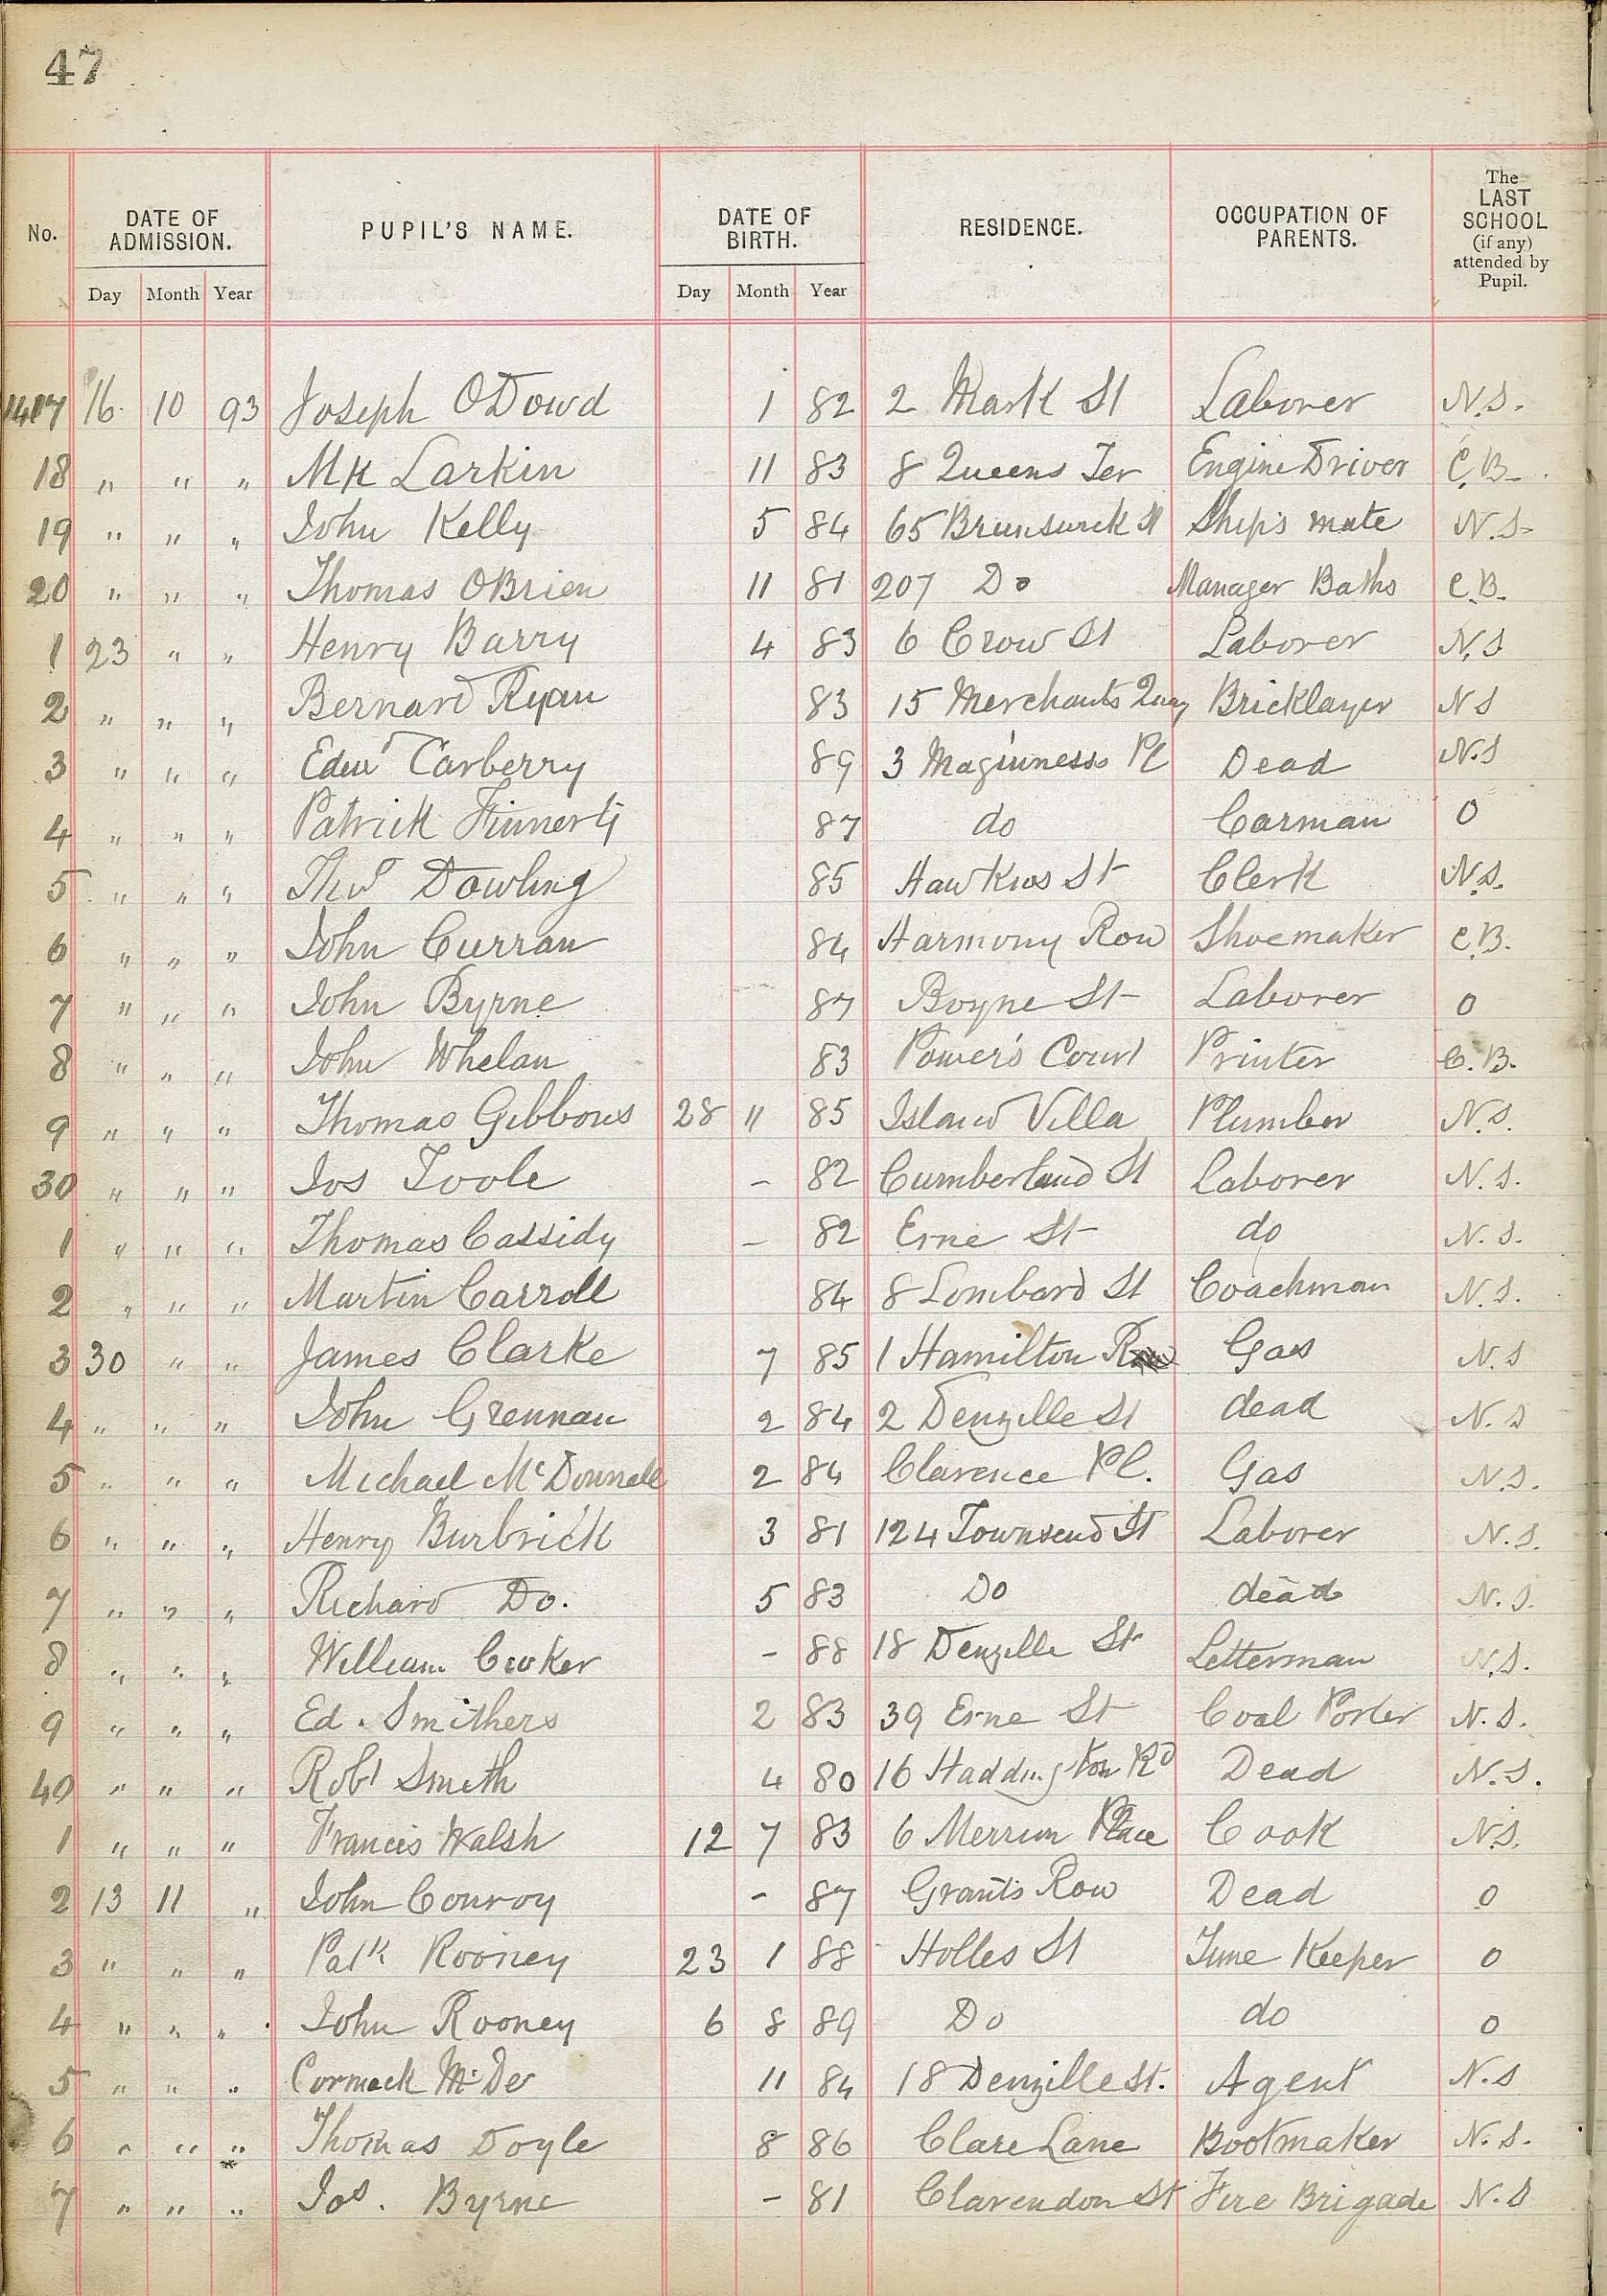 47
No. DATE OF ADMISSION. PUPIL'S NAME. DATE OF BIRTH. RESIDENCE. OCCUPATION OF PARENTS. The LAST SCHOOL (if any) attended by Pupil.
Day Month Year Day Month Year
1417 16 10 93 Joseph ODowd 1 82 2 Mark St Laborer N.S.
18 " " " Mk Larkin 11 83 8 Queens Ter Engine Driver C.B.
19 " " " John Kelly 5 84 65 Brunswick St Ship's mate N.S.
20 " " " Thomas OBrien 11 81 207 Do Manager Baths C.B.
1 23 " " Henry Barry 4 83 6 Crow St Laborer N.S
2 " " " Bernard Ryan 83 15 Merchants Quay Bricklayer N S
3 " " " Edwd Carberry 89 3 Maginness Pl Dead N.S
4 " " " Patrick Finnerty 87 do Carman 0
5 " " " Thos Dowling 85 Hawkins St Clerk N.S.
6 " " " John Curran 84 Harmony Row Shoemaker C.B.
7 " " " John Byrne 87 Boyne St Laborer 0
8 " " " John Whelan 83 Power's Court Printer C.B.
9 " " " Thomas Gibbons 28 11 85 Island Villa Plumber N.S.
30 " " " Jos Toole - 82 Cumberland St Laborer N.S.
1 " " " Thomas Cassidy - 82 Erne St do N.S.
2 " " " Martin Carroll 84 8 Lombard St Coachman N.S.
3 30 " " James Clarke 7 85 1 Hamilton Row Gas N.S
4 " " " John Grennan 2 84 2 Denzille St dead N.S
5 " " " Michael McDonnell 2 84 Clarence Pl. Gas N.S.
6 " " " Henry Burbrick 3 81 124 Townsend St Laborer N.S.
7 " " " Richard Do. 5 83 Do dead N.S.
8 " " " William - 88 18 Denzille St Letterman N.S.
9 " " " Ed. Smithers 2 83 39 Erne St Coal Porter N.S.
40 " " " Robt Smith 4 80 16 Haddington Rd Dead N.S.
1 " " " Francis Walsh 12 7 83 6 Merrion Place Cook N.S.
2 13 11 " John Conroy - 87 Grants Row Dead 0
3 " " " Patk Rooney 23 1 88 Holles St Time Keeper 0
4 " " " John Rooney 6 8 89 Do do 0
5 " " " Cormack 11 84 18 Denzille St. Agent N.S
6 " " " Thomas Doyle 8 86 Clare Lane Bootmaker N.S.
7 " " " Jos. Byrne - 81 Clarendon St Fire Brigade N.S